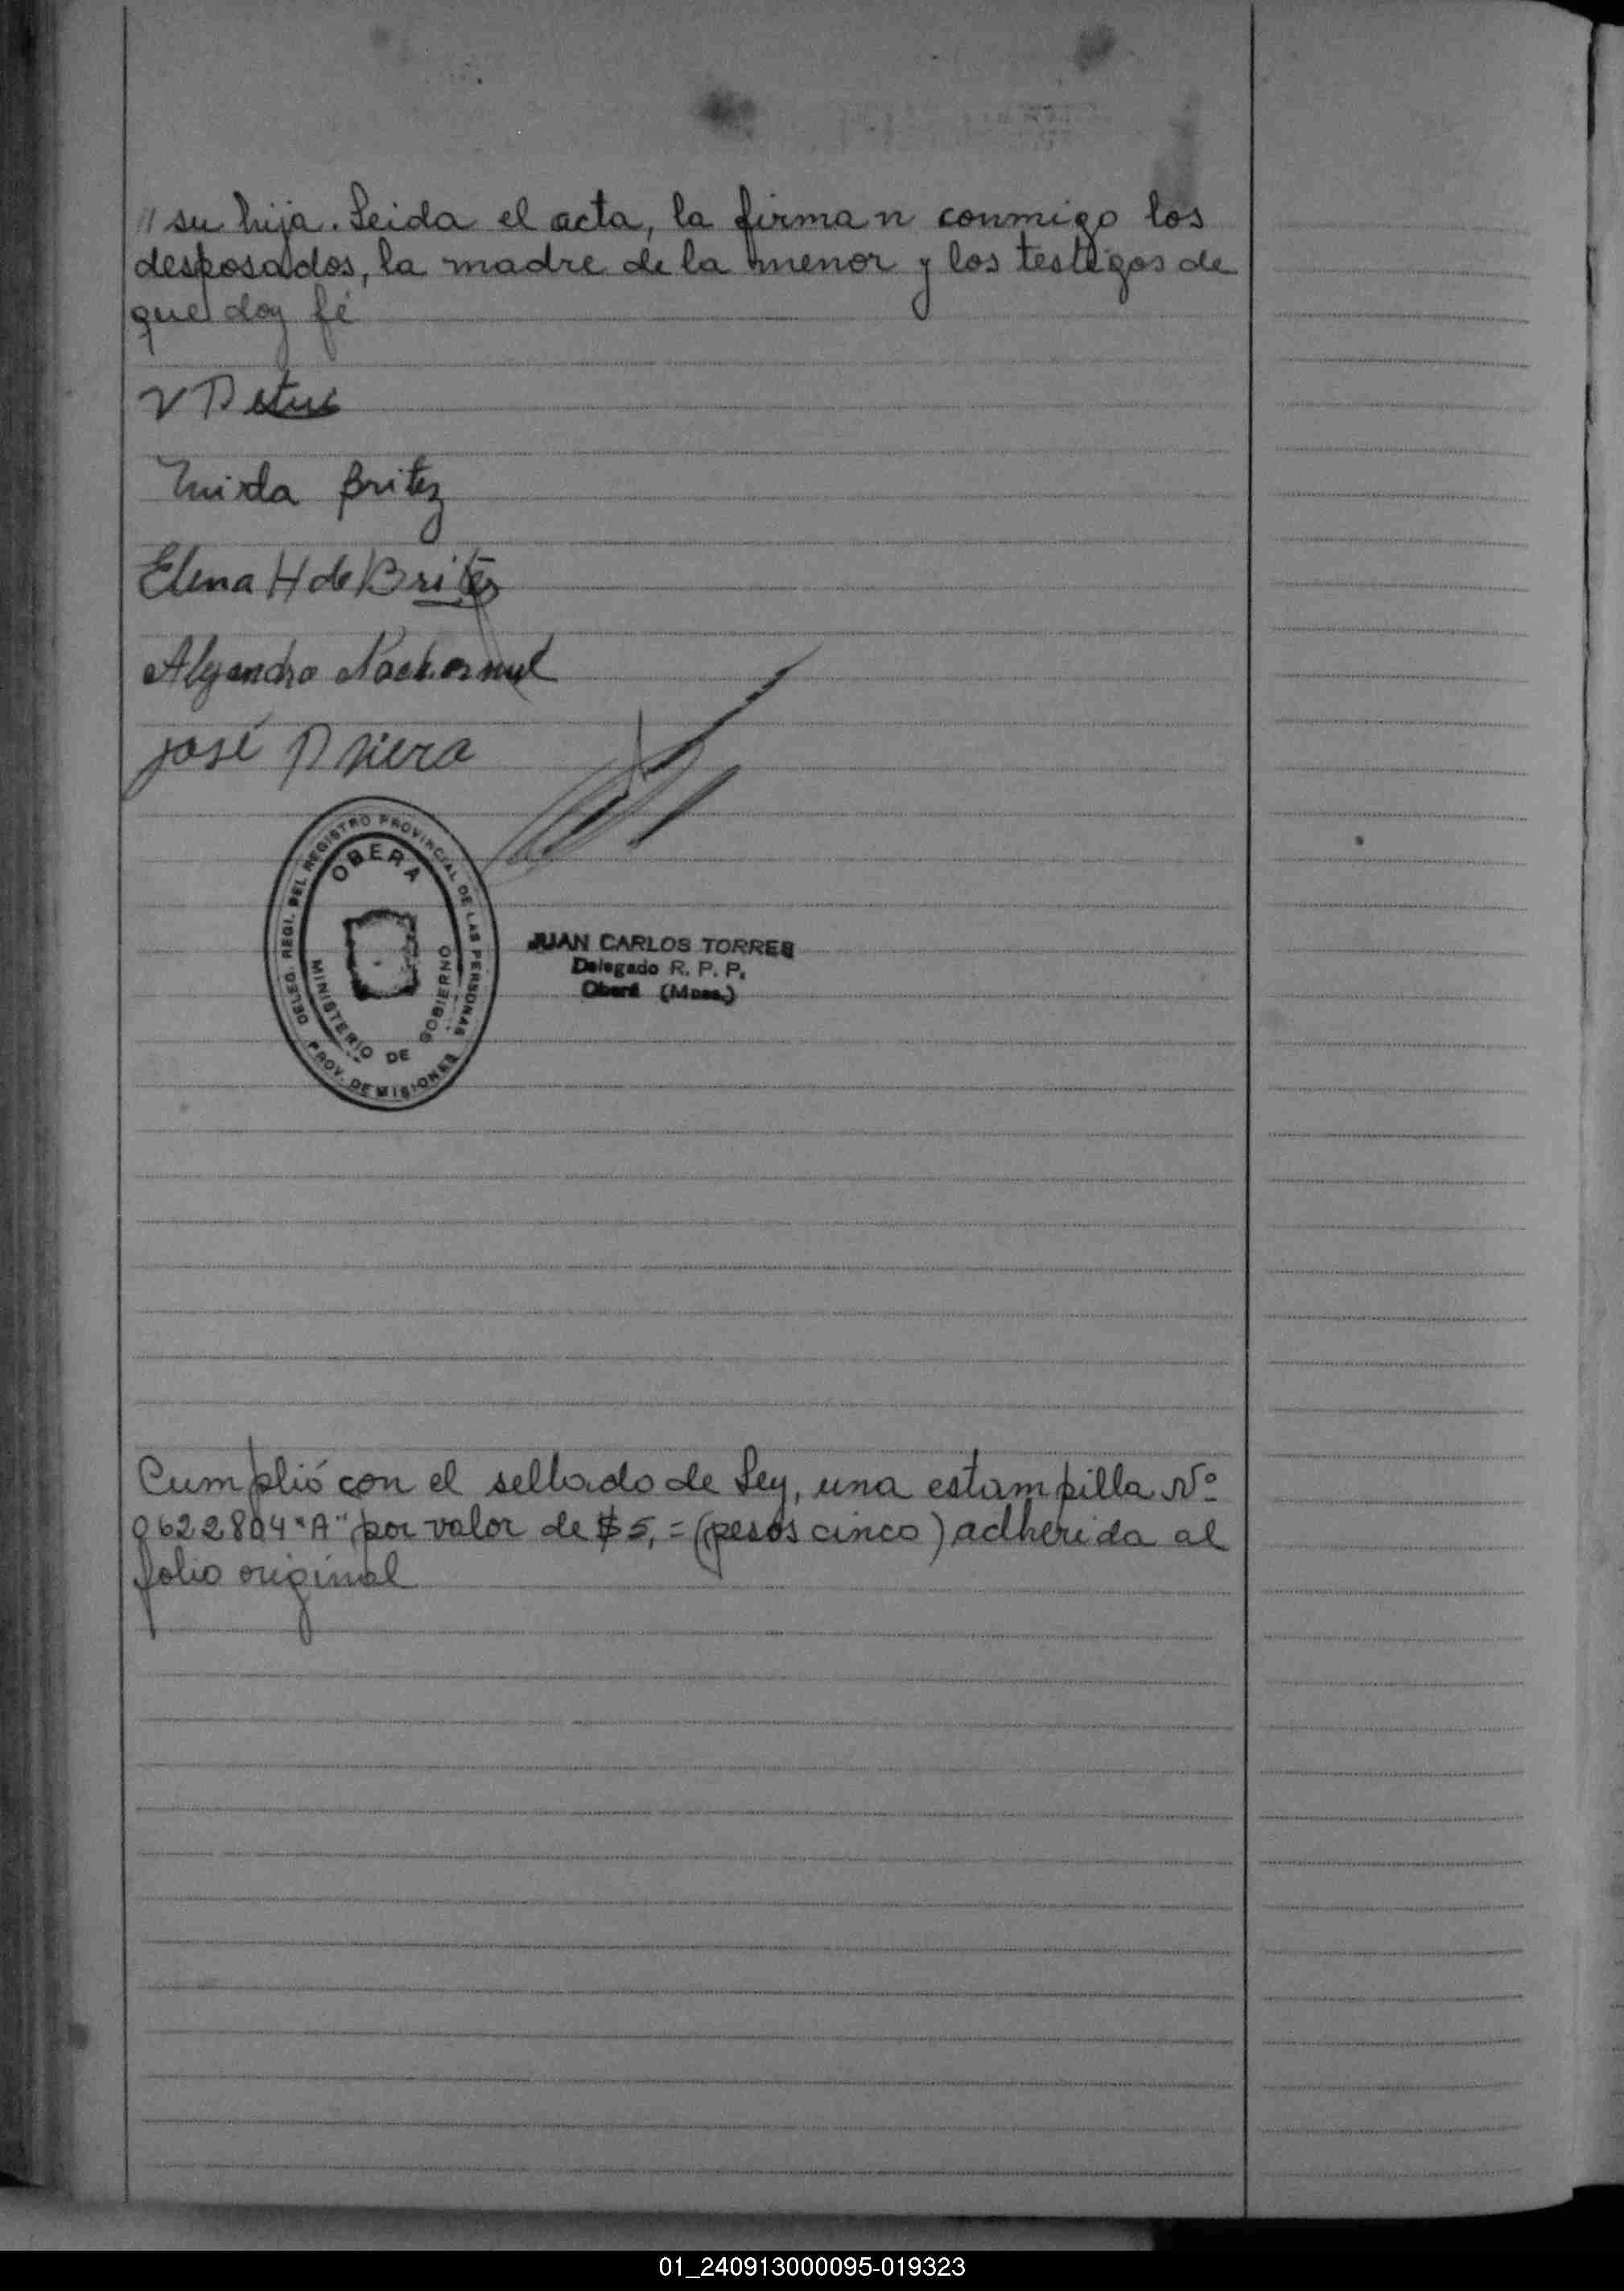 // su hija. Leida el acta, la firman conmigo los
desposados, la madre de la menor y los testigos de
que doy fé
Britez
Elena H de Britez
Alejandro
José
DELEG. REGI. DEL REGISTRO PROVINCIAL DE LAS PERSONAS
OBERA
MINISTERIO DE GOBIERNO
PROV. DE MISIONES
JUAN CARLOS TORRES
Delegado R. P. P.
Oberá (Mnes.)
Cumplió con el sellado de Ley, una estampilla Nº
0622804 "A" por valor de $5,= (pesos cinco) adherida al
folio original
01_240913000095-019323